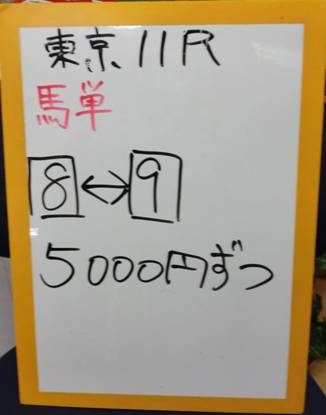 東京11R
馬単
8↔9
5000円ずつ